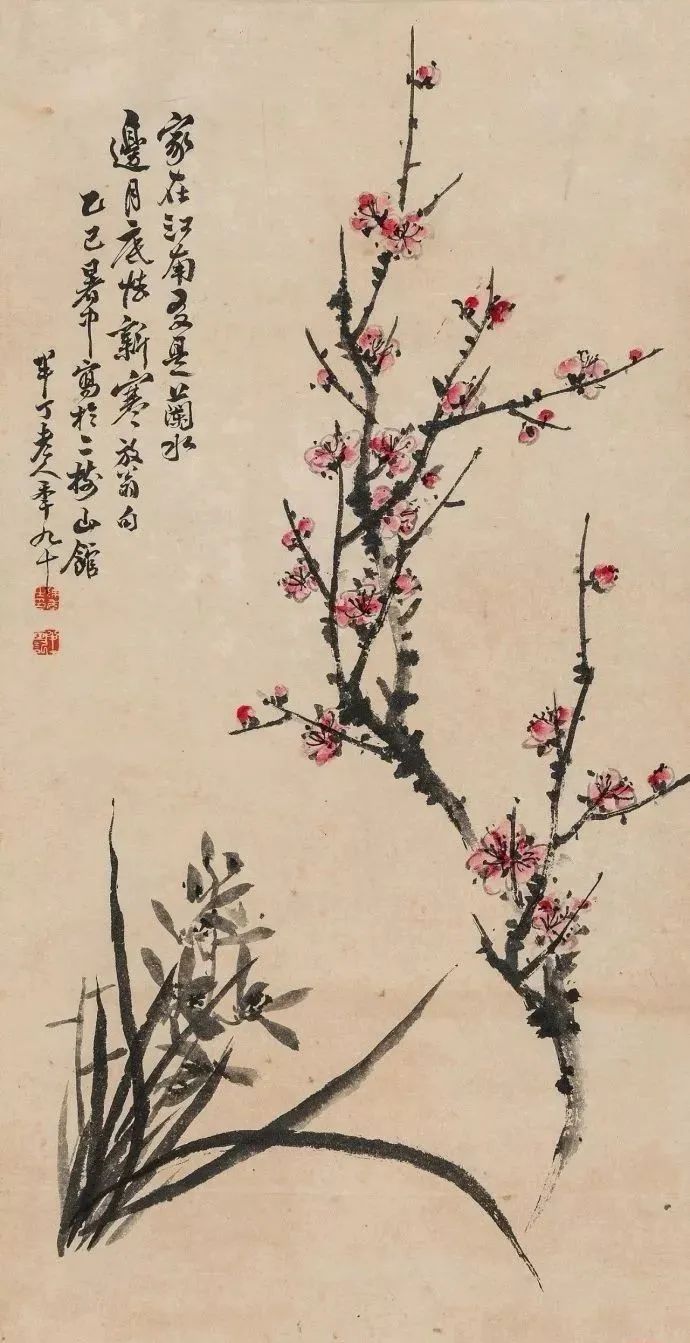 家在江南友是蘭水
邊月底怯新寒放翁句
乙巳暑中寫於二樹山館
半丁老人年九十